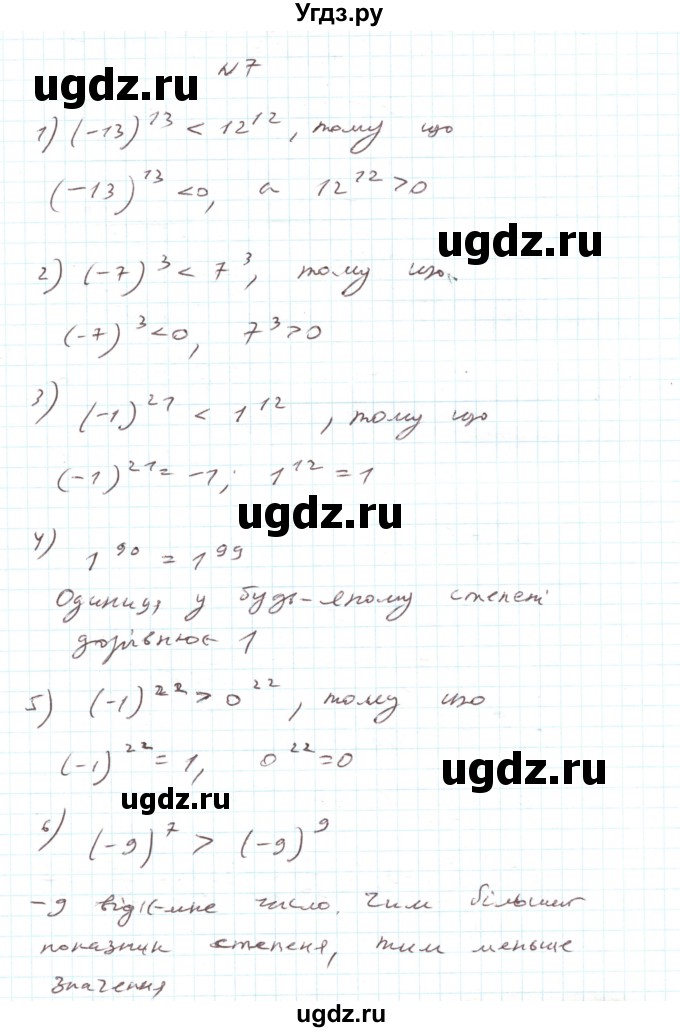 Угдз.ру
ugdz.ru
N7
1) (-13)^13 < 12^12, тому що
(-13)^13 <0, а 12^12 >0
ugdz.ru
2) (-7)^3 < 7^3, тому що
(-7)^3 <0, 7^3 >0
3) (-1)^21 < 1^12, тому що
(-1)^21 = -1; 1^12 = 1
ugdz.ru
4) 1^90 = 1^99
Одиниця у будь-якому степені
дорівнює 1
5) (-1)^22 > 0^22, тому що
(-1)^22 = 1, 0^22 = 0
ugdz.ru
ugdz.ru
6) (-9)^7 > (-9)^9
-9 відʼємне число. Чим більший
показник степеня, тим меньше
значення
ugdz.ru